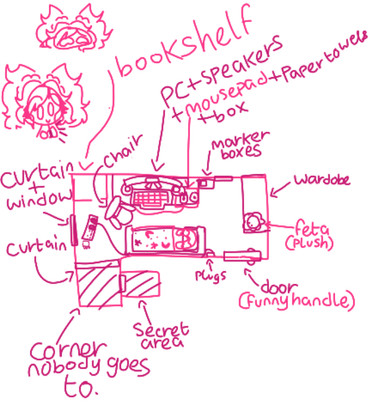 bookshelf
PC+speakers
+mousepad+Papertowels
+box
chair
marker
boxes
curtain
+
window
wardobe
curtain
feta
(plush)
plugs
door
(funny handle)
Secret
area
corner
nobody goes
to.